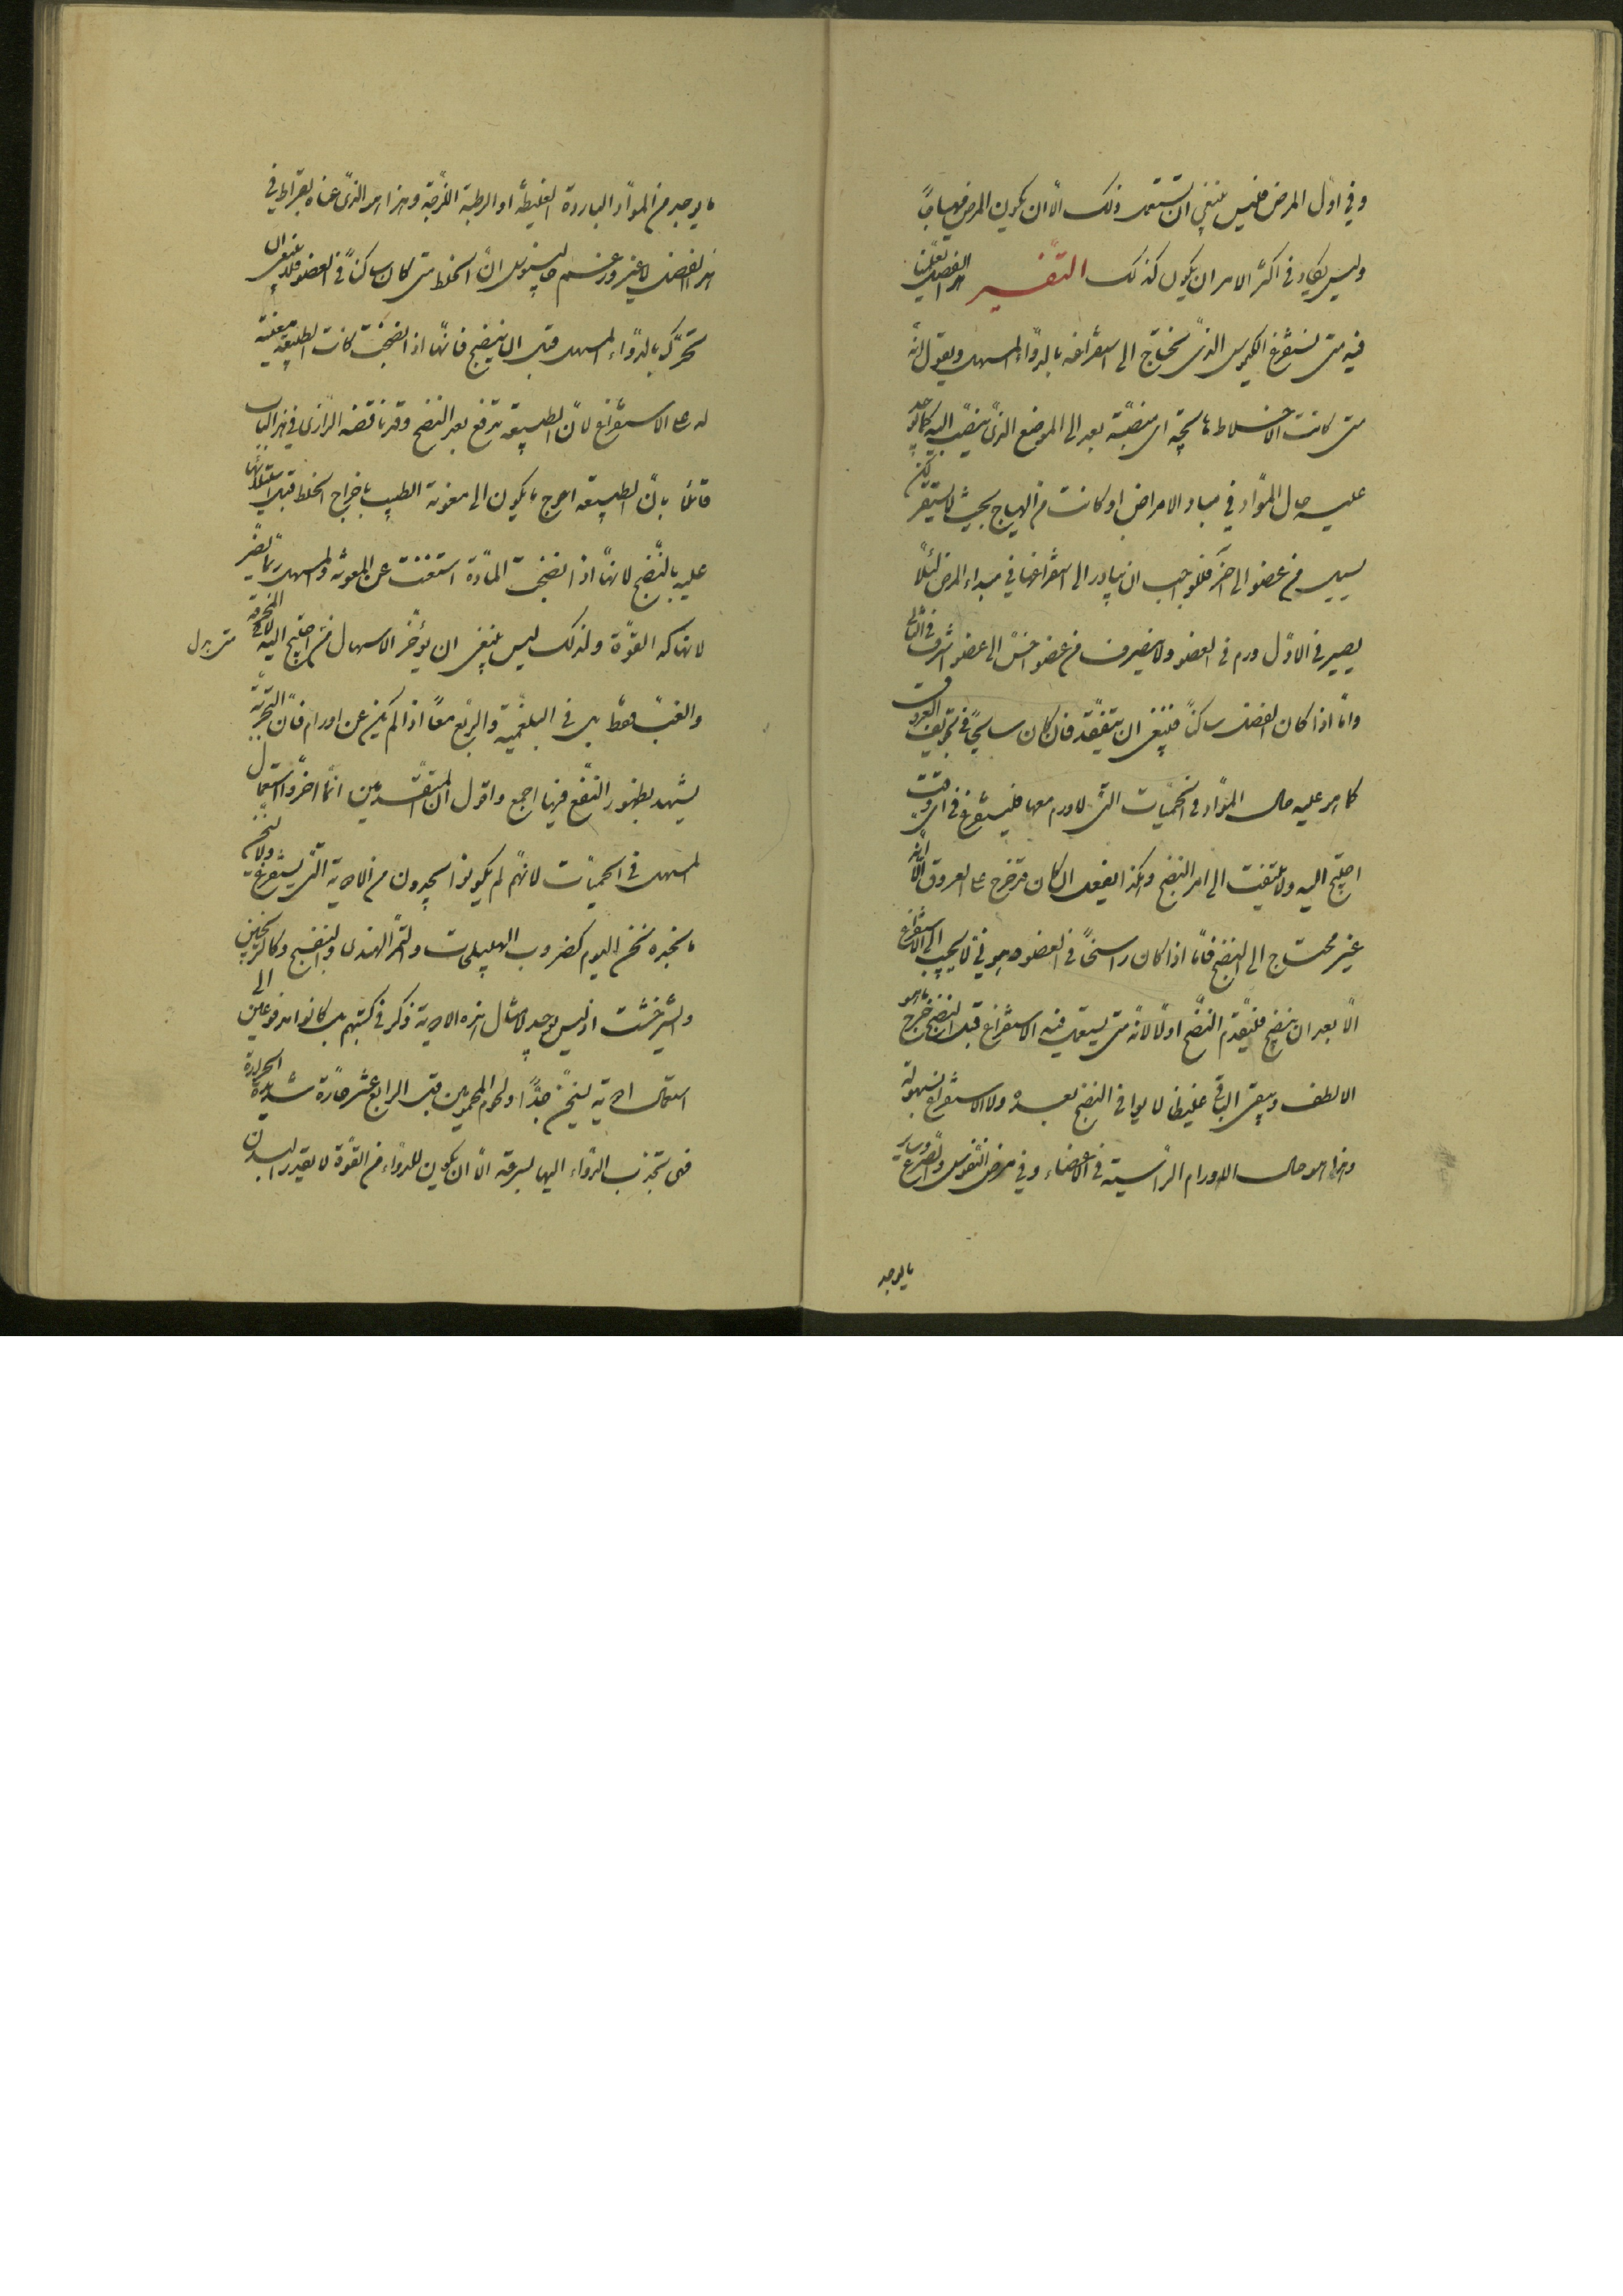 وفي اول المرض فليس ينبغي ان تستعمل ذلك الا ان يكون المرض مهياجا
وليس يكاد في اكثر الامر ان يكون كذلك التفسير هذا الفصل يعلمنا
فيه متى نستفرغ الكيموس الذي نحتاج الى استفراغه بالدواء المسهل ويقول انه
متى كانت الاخلاط هائجة اي منصبة بعد الى الموضع الذي ينصب اليه كما يوجد
عليه حال المواد في مبادء الامراض او كانت من الهياج بحيث لا يستقر لكن
يسيل من عضو الى اخر فالواجب ان يبادر الى استفراغها في مبداء المرض لئلا
يصير في الاول ورم في العضو ولا ينصرف من عضو اخس الى عضو اشرف في الثاني
واما اذا كان الفضل ساكنا فينبغي ان يتفقد فان كان سابحا في تجويف العروق
كما هو عليه حال المواد في الحميات التي لا ورم معها فليستفرغ في اي وقت
احتيج اليه ولا يلتفت الى امر النضج وهكذا يفعل ان كان قد خرج عن العروق الا انه
غير محتاج الى النضج فاما اذا كان راسخا في العضو وهو نئ لا يجيب الى الاستفراغ
الا بعد ان ينضج فليقدم النضج اولا لانه متى يستعمل فيه الاستفراغ قبل النضج خرج ما هو
الالطف ويبقى الباقي غليظا لا يواتي النضج بعده ولا الاستفراغ بسهولة
وهذا هو حال الاورام الراسية في الاعضاء وفي مرض النقرس والصرع وساير
ما يوجد
ما يوجد من المواد الباردة الغليظة او الرطبة اللزجة وهذا هو الذي عناه بقراط في
هذا الفصل لا غير وزعم جالينوس ان الخلط متى كان ساكنا في العضو فلا ينبغي ان
تحرك بالدواء المسهل قبل ان ينضج فانها اذا نضجت كانت الطبيعة معينة
له على الاستفراغ لان الطبيعة تدفع بعد النضج وقد ناقضه الرازي في هذا الباب
قائلا بان الطبيعة احوج ما يكون الى معونة الطبيب باخراج الخلط قبل استيلائها
عليه بالنضج لانها اذا انضجت المادة استغنت عن المعونة والمسهل ربما يضر
لانهاكه القوة ولذلك ليس ينبغي ان يؤخر الاسهال متى احتيج اليه لا في المحرقة
والغب فقط بل في البلغمية والربع معا اذا لم يكن عن اورام فان التجربة
يشهد بظهور النفع فيها اجمع واقول ان المتقدمين انما اخروا استعمال
المسهل في الحميات لانهم لم يكونوا يجدون من الادوية التي يستفرغ ولا يسخن
ما نجده نحن اليوم كضروب الهليلجات والتمر الهندي والبنفسج وكالترنجبين
والشيرخشت اذ ليس يوجد لامثال هذه الادوية ذكر في كتبهم بل كانوا مدفوعين الى
استعمال ادوية يسخن جدا ولحوم المحمومين قبل الرابع عشر حارة شديدة الحرارة
فهى تجذب الدواء اليها بسرعة الا ان يكون للدواء من القوة لا يقدر البدن